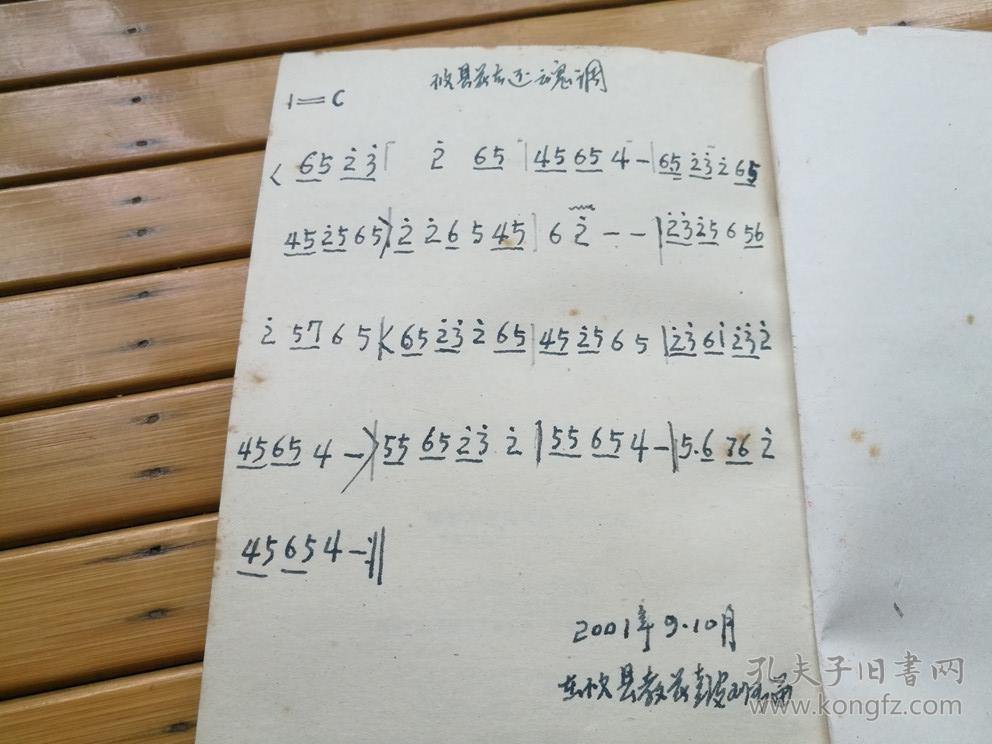 攸县 调
1=C
< 65 2̇3̇ | 2̇ 65 | 45 65 4 - | 65 2̇3̇ 2̇ 65
45 2̇5 65 >| 2̇ 2̇ 6 5 45 | 6 2̇ - - | 2̇3̇ 2̇5 6 56
2̇ 57 6 5 |< 65 2̇3̇ 2̇ 65 | 45 2̇5 6 5 | 2̇3̇ 61̇ 2̇3̇ 2̇
45 65 4 - >| 55 65 2̇3̇ 2̇ | 55 65 4 - | 5.6 76 2̇
45 65 4 - :||
2001年9.10月
攸县教
孔夫子旧书网
www.kongfz.com